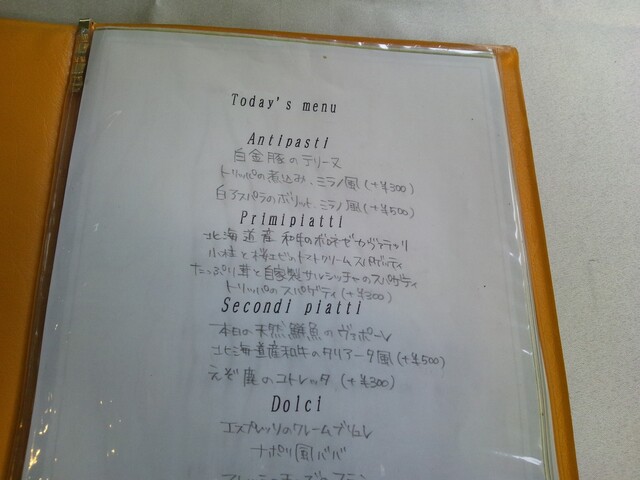 Today's menu
Antipasti
白金豚のテリーヌ
トリッパの煮込み、ミラノ風 (+¥300)
白アスパラのボリット、ミラノ風 (+¥500)
Primipiatti
北海道産 和牛のボロネーゼ
小柱と桜エビのトマトクリームスパゲッティ
たっぷり茸と自家製サルシッチャのスパゲティ
トリッパのスパゲティ (+¥300)
Secondi piatti
本日の天然鮮魚のヴァポーレ
北海道産和牛のタリアータ風 (+¥500)
えぞ鹿のコトレッタ (+¥300)
Dolci
エスプレッソのクレームブリュレ
ナポリ風ババ